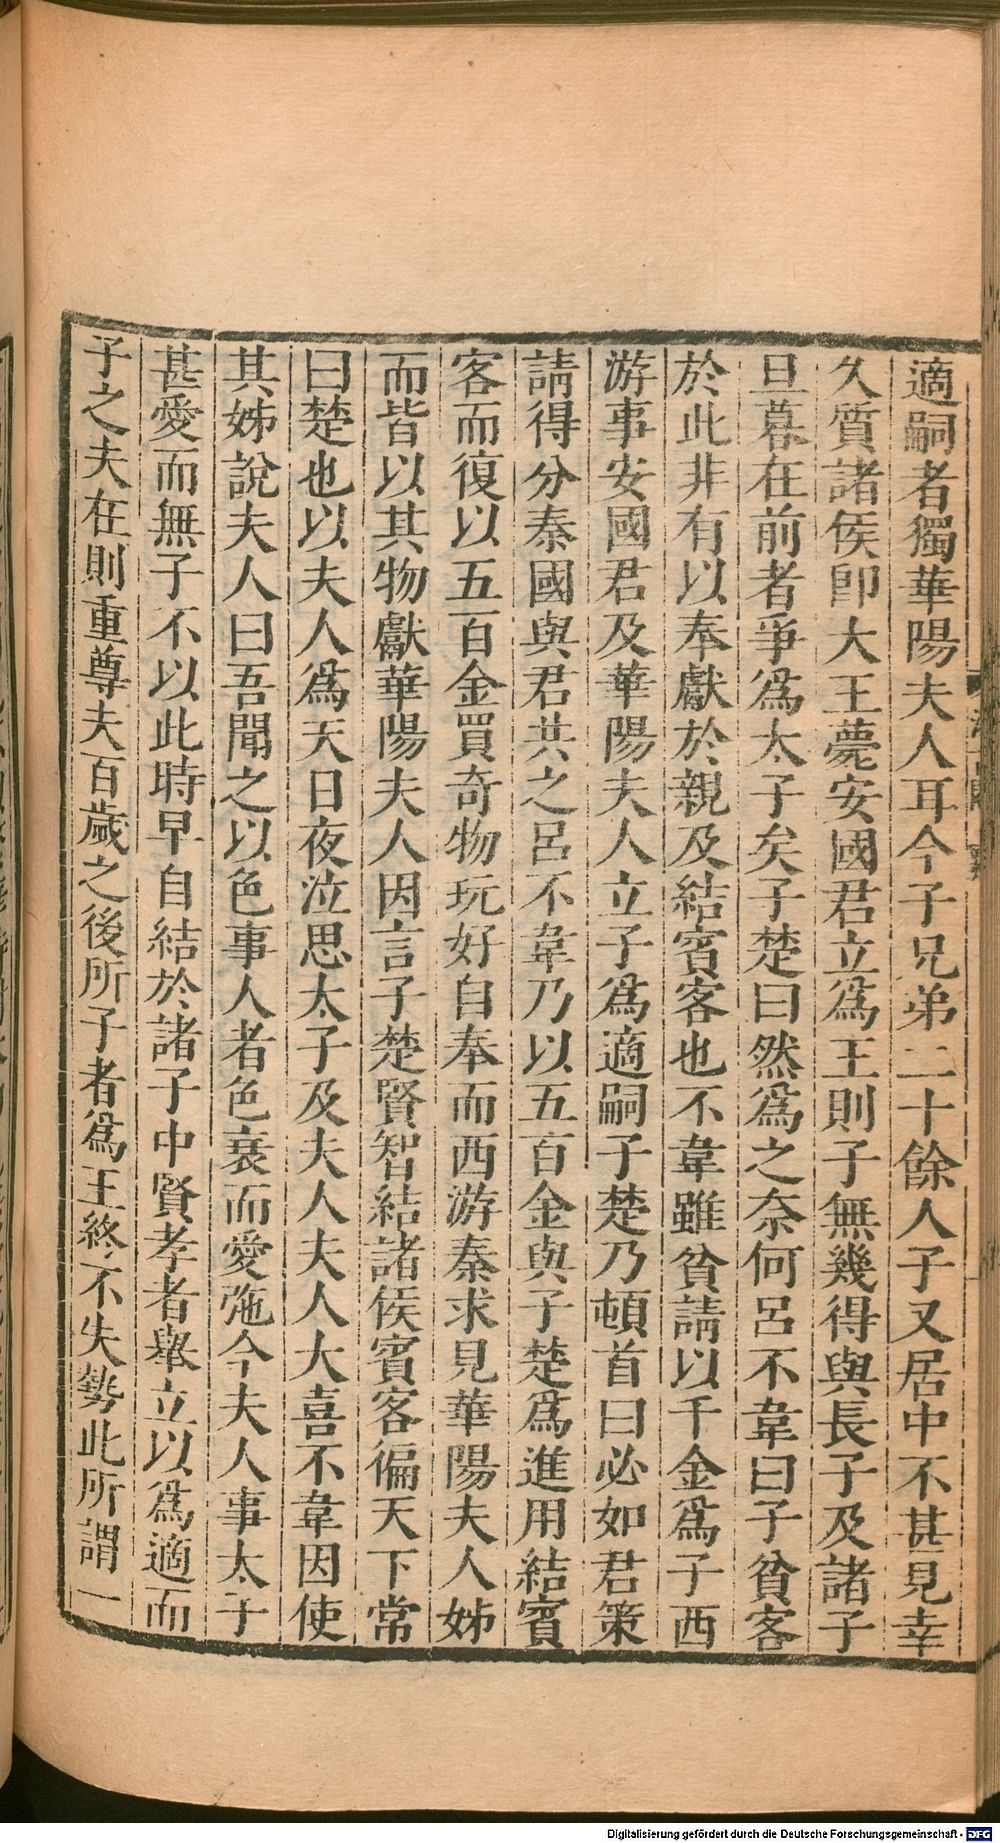 適嗣者獨華陽夫人耳今子兄弟二十餘人子又居中不甚見幸
久質諸侯卽大王薨安國君立爲王則子無幾得與長子及諸子
旦暮在前者爭爲太子矣子楚曰然爲之奈何呂不韋曰子貧客
於此非有以奉獻於親及結賓客也不韋雖貧請以千金爲子西
游事安國君及華陽夫人立子爲適嗣子楚乃頓首曰必如君策
請得分秦國與君共之呂不韋乃以五百金與子楚爲進用結賓
客而復以五百金買奇物玩好自奉而西游秦求見華陽夫人姊
而皆以其物獻華陽夫人因言子楚賢智結諸侯賓客徧天下常
曰楚也以夫人爲天日夜泣思太子及夫人夫人大喜不韋因使
其姊說夫人曰吾聞之以色事人者色衰而愛弛今夫人事太子
甚愛而無子不以此時早自結於諸子中賢孝者舉立以爲適而
子之夫在則重尊夫百歲之後所子者爲王終不失勢此所謂一
Digitalisierung gefördert durch die Deutsche Forschungsgemeinschaft - DFG